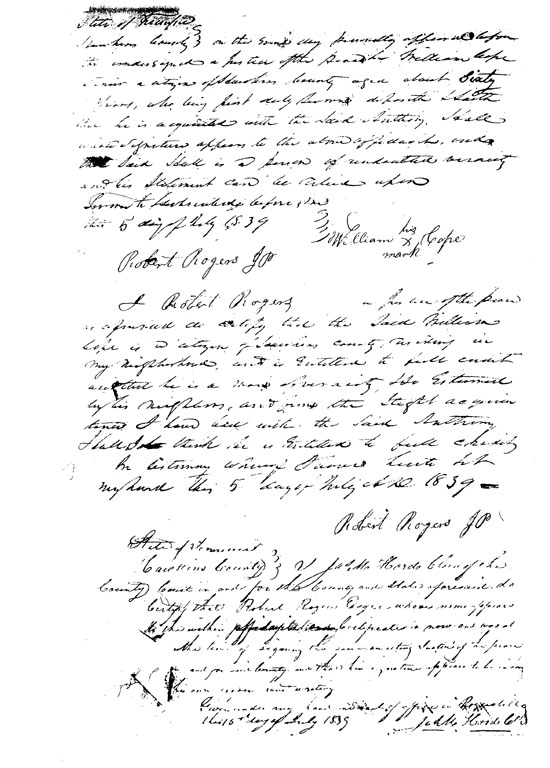 State of Tennessee
Hawkins County } on the same day personally appeared before
the undersigned a Justice of the Peace William Cope
Senior a citizen of Hawkins County aged about Sixty
years, who, being first duly sworn deposeth & saith
that he is acquainted with the said Anthony Hall
whose signature appears to the above affidavit, and
that said Hall is a person of undoubted veracity
and his statement can be relied upon
Sworn to & subscribed before me
this 5 day of July 1839
William his X mark Cope
Robert Rogers JP
I Robert Rogers a Justice of the peace
as aforesaid do certify that the said William
Cope is a citizen of Hawkins county residing in
my neighborhood, and is entitled to full credit
and that he is a man of veracity, so esteemed
by his neighbors, and from the slight acquain
tance I have had with the said Anthony
Hall I do think he is entitled to full charity
In testimony whereof I have hereto set
my hand this 5th day of July A.D. 1839
Robert Rogers JP
State of Tennessee
Hawkins County } I Clerk of the
County Court in and for the County and State aforesaid do
Certify that Robert Rogers Esqr. whose name appears
to the within Certificate is now and was at
the time of signing the same an acting Justice of the peace
in and for said County and that his signature appears to be in
his own proper hand writing
Given under my hand and seal of office in Rogersville
this 10th day of July 1839